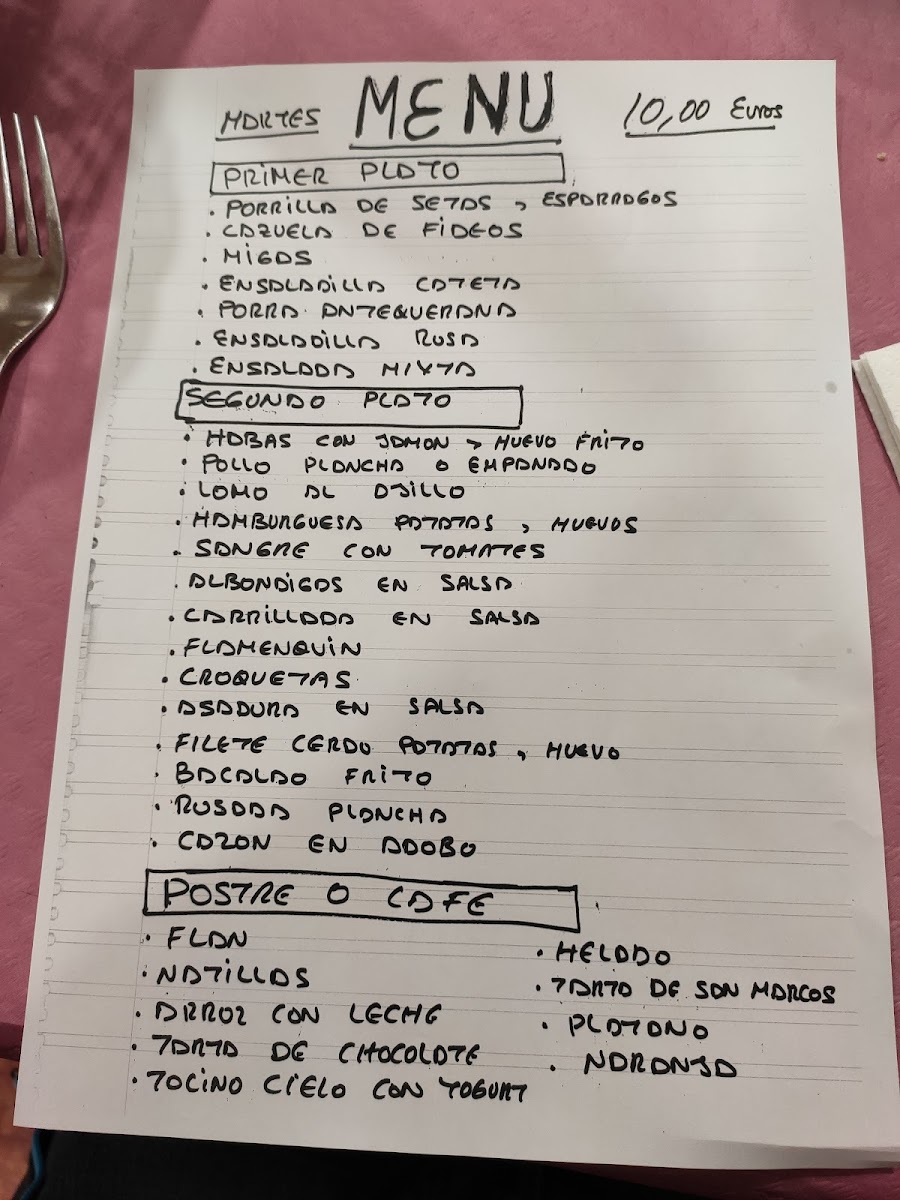 MARTES MENU 10,00 Euros
PRIMER PLATO
• PORRILLA DE SETAS, ESPARRAGOS
• CAZUELA DE FIDEOS
• MIGAS
• ENSALADILLA CATETA
• PORRA ANTEQUERANA
• ENSALADILLA RUSA
• ENSALADA MIXTA
SEGUNDO PLATO
• HABAS CON JAMON, HUEVO FRITO
• POLLO PLANCHA O EMPANADO
• LOMO AL AJILLO
• HAMBURGUESA PATATAS, HUEVOS
• SANGRE CON TOMATES
• ALBONDIGAS EN SALSA
• CARRILLADA EN SALSA
• FLAMENQUIN
• CROQUETAS
• ASADURA EN SALSA
• FILETE CERDO PATATAS, HUEVO
• BACALAO FRITO
• RUSADA PLANCHA
• CAZON EN ADOBO
POSTRE O CAFE
• FLAN
• NATILLAS
• ARROZ CON LECHE
• TARTA DE CHOCOLATE
• TOCINO CIELO CON YOGURT
• HELADO
• TARTA DE SAN MARCOS
• PLATANO
• NARANJA